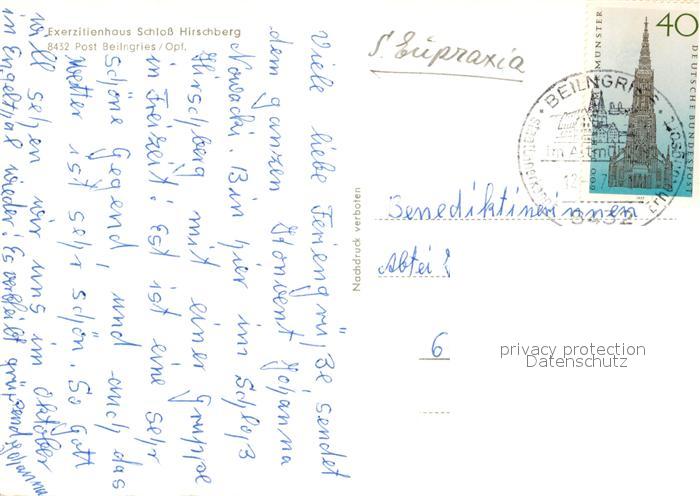 Exerzitienhaus Schloß Hirschberg
8432 Post Beilngries/Opf.
Viele liebe Feriengrüße sendet
dem ganzen Konvent Johanna
Nowacki. Bin hier im Schloß
Hirschberg mit einer Gruppe
in Freizeit. Est ist eine sehr
schöne Gegend, und auch das
Wetter ist sehr schön. So Gott
will sehen wir uns im Oktober
in Engelthal wieder! Es verbleibt grüßend Johanna
Nachdruck verboten
S. Eupraxia
40
600 JAHRE ULMER MÜNSTER
DEUTSCHE BUNDESPOST
BEILNGRIES
im Altmühltal
8432
Benediktinerinnen
Abtei
6
privacy protection
Datenschutz